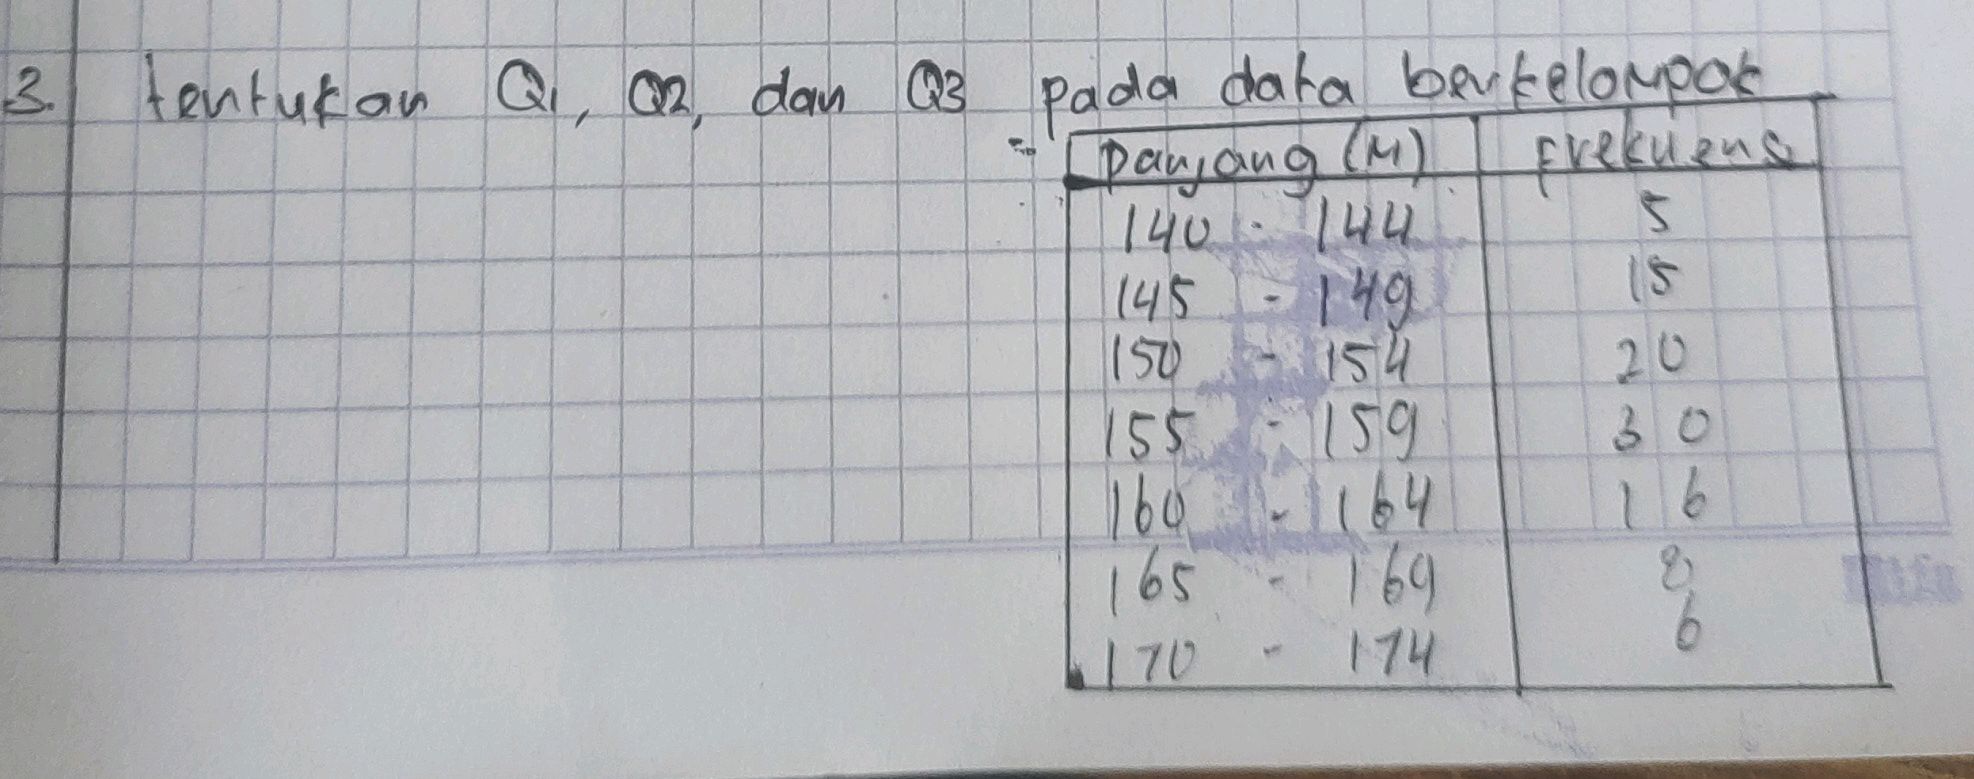 3. tentukan Q1, Q2, dan Q3 pada data berkelompok
Panjang (M) Frekuens
140 - 144 5
145 - 149 15
150 - 154 20
155 - 159 30
160 - 164 16
165 - 169 8
170 - 174 6